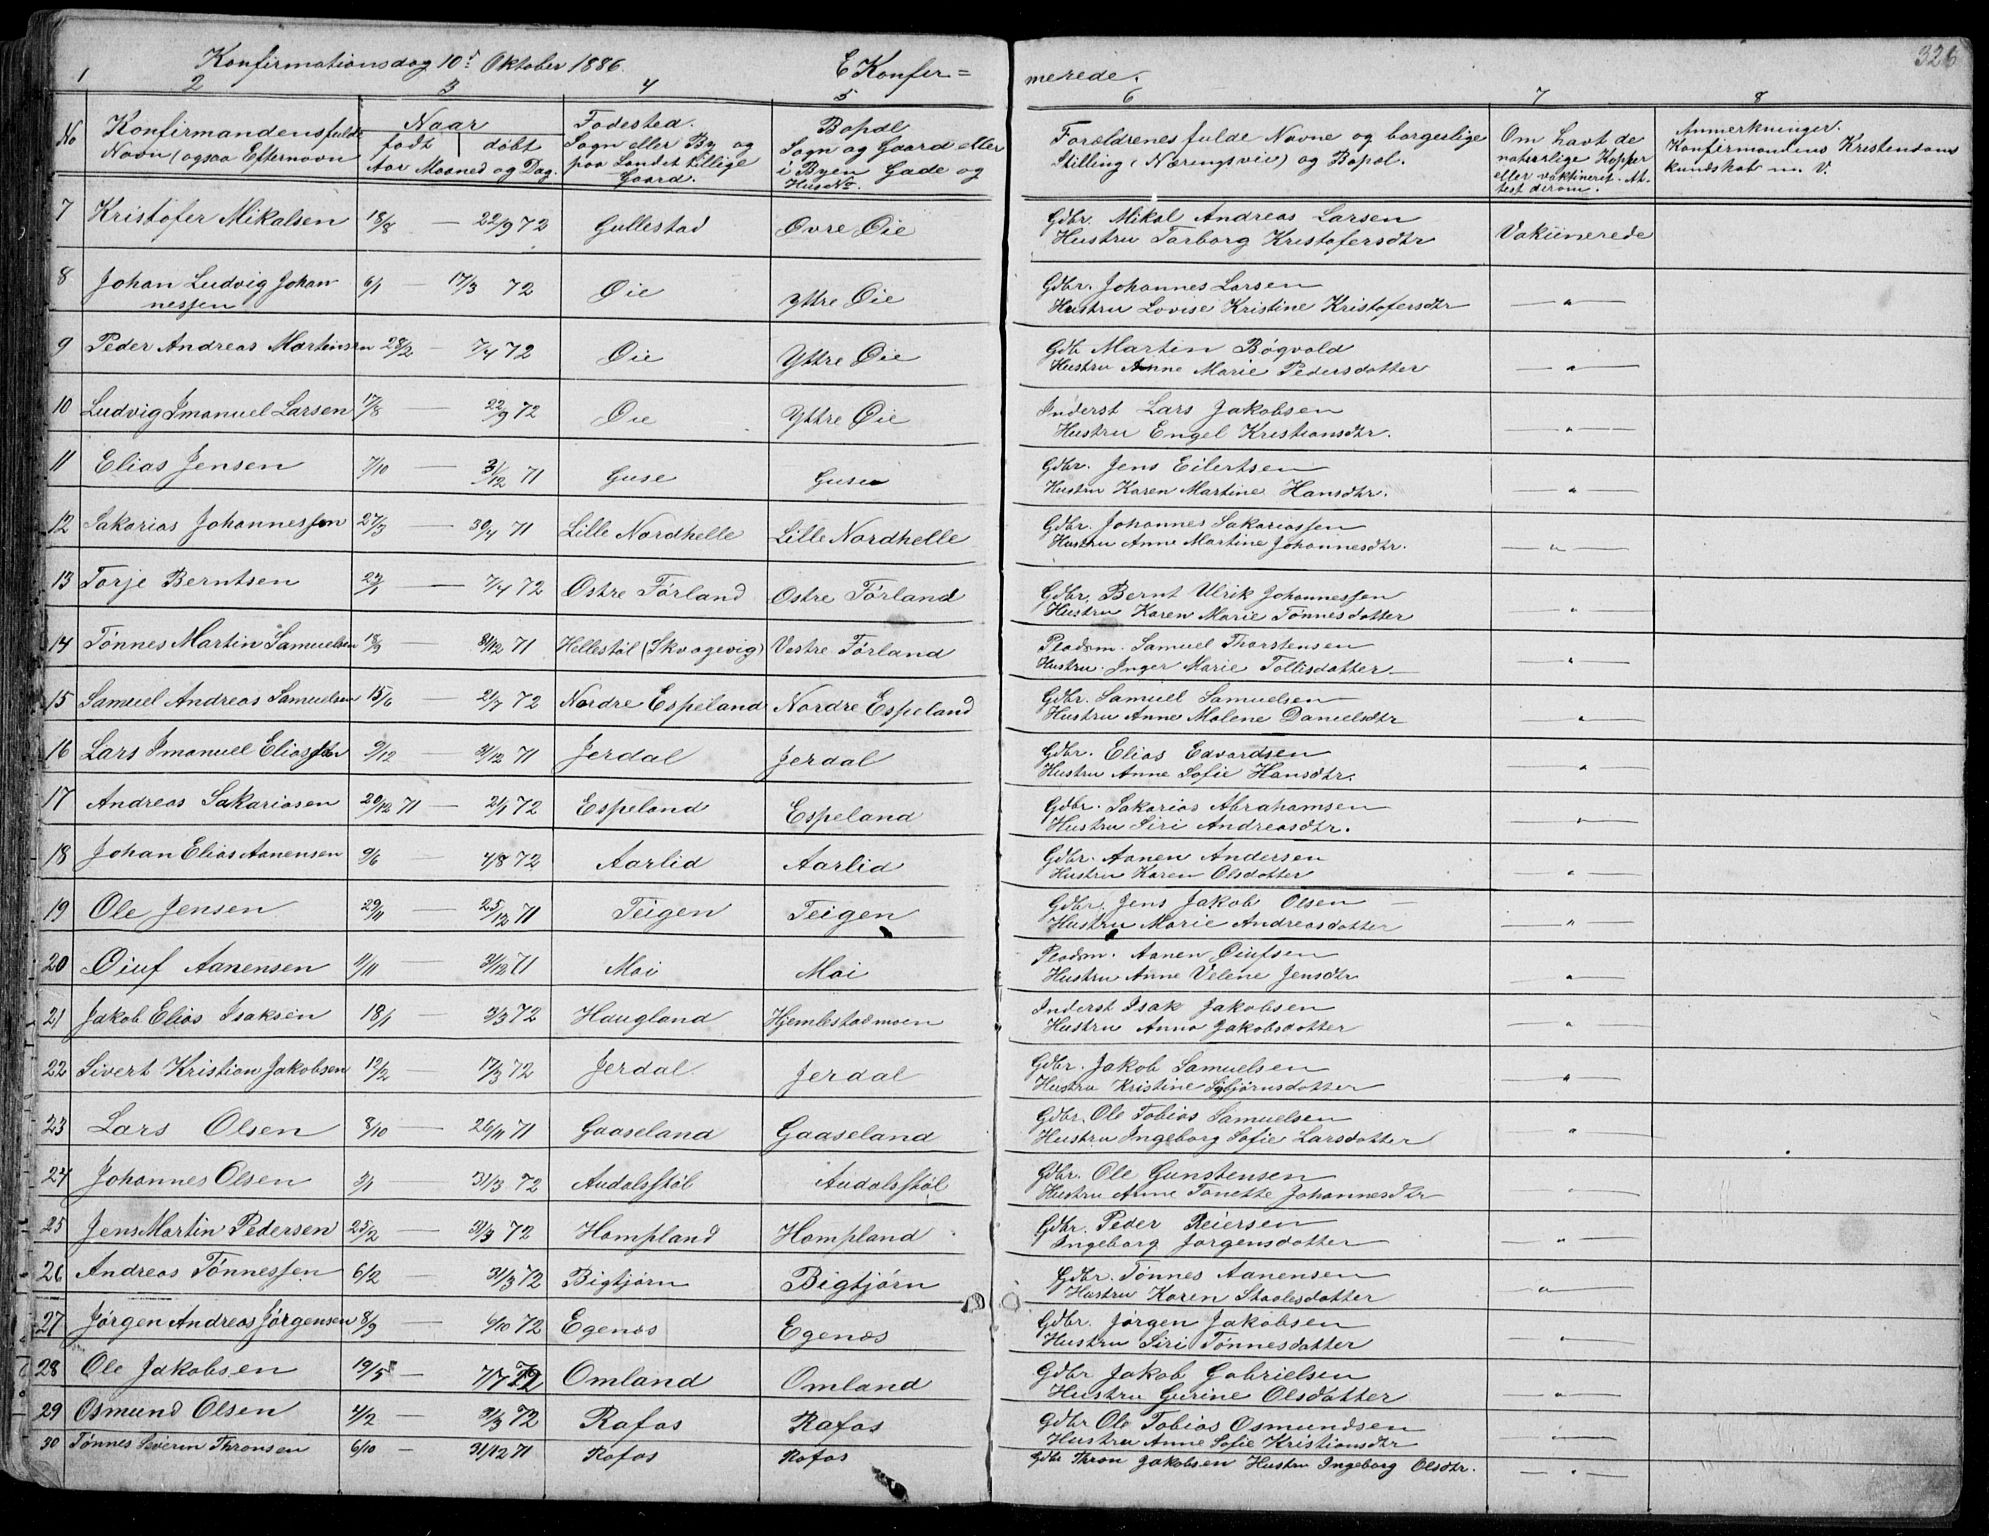 Konfirmationsdag 10d Oktober 1886. E Konfir=
merede. 326
1 2 3 4 5 6 7 8
No Konfirmandens fulde Navn (ogsaa Efternavn Naar født | døbt Aar Maaned og Dag. Fødested. Sogn eller By og paa Landet tillige Gaard. Bopæl Sogn og Gaard eller i Byen Gade og Hus No. Forældrenes fulde Navne og borgerlige Stilling (Næringsvei) og Bopæl. Om havt de naturlige Kopper eller vaktineret. Attest derom. Anmerkninger. Konfirmandens Kristendomskundskab m. V.
7 Kristofer Mikalsen 18/8 — 22/9 72 Gullestad Øvre Øie Gdbr. Mikal Andreas Larsen
Hustru Tarborg Kristofersdtr Vakiinerede
8 Johan Ludvig Johannessen 6/1 — 17/3 72 Øie Yttre Øie Gdbr. Johannes Larsen
Hustru Lovise Kristine Kristofersdtr — " —
9 Peder Andreas Martinsen 28/2 — 7/4 72 Øie Yttre Øie Gdb Martin Bøgvald
Hustru Anne Marie Pedersdatter — " —
10 Ludvig Imanuel Larsen 17/8 — 22/9 72 Øie Yttre Øie Inderst Lars Jakobsen
Hustru Engel Kristiansdtr. — " —
11 Elias Jensen 7/10 — 31/12 71 Guse Guse Gdbr. Jens Eilertsen
Hustru Karen Martine Hansdtr. — " —
12 Sakarias Johannessen 27/3 — 30/4 71 Lille Nordhelle Lille Nordhelle Gdbr. Johannes Sakariassen
Hustru Anne Martine Johannesdtr. — " —
13 Tarje Berntsen 27/1 — 7/4 72 Østre Førland Østre Førland Gdbr. Bernt Ulrik Johannessen
Hustru Karen Marie Tønnesdatter — " —
14 Tønnes Martin Samuelsen 18/9 31/12 71 Hellestøl (Skvagevig) Vestre Førland Pladsm. Samuel Thorstensen
Hustru. Inger Marie Tollisdatter — — " —
15 Samuel Andreas Samuelsen 15/6 — 21/7 72 Nordre Espeland Nordre Espeland Gdbr. Samuel Samuelsen
Hustru Anne Malene Danielsdtr — " —
16 Lars Imanuel Eliassen 9/12 — 31/12 71 Jerdal Jerdal Gdbr. Elias Edvardsen
Hustru Anne Sofie Hansdtr. — " —
17 Andreas Sakariasen 20/12 71 — 21/1 72 Espeland Espeland Gdbr. Sakarias Abrahamsen
Hustru Siri Andreasdtr. — " —
18 Johan Elias Aanensen 9/6 — 4/8 72 Aarlid Aarlid Gdbr. Aanen Andersen
Hustru Karen Olsdatter — " —
19 Ole Jensen 29/11 — 25/12 71 Teigen Teigen Gdbr. Jens Jakob Olsen —
Hustru Marie Andreasdatter — " —
20 Øiuf Aanensen 11/11 — 31/12 71 Moi Moi Pladsm. Aanen Øiufsen
Hustru Anne Velene Jensdtr — " —
21 Jakob Elias Isaksen 18/1 — 3/3 72 Haugland Hjemlestadmoen Inderst Isak Jakobsen
Hustru Anna Jakobsdatter — " —
22 Sivert Kristian Jakobsen 12/2 — 17/3 72 Jerdal Jerdal Gdbr. Jakob Samuelsen
Hustru Kristine Sibjørnsdatter — " —
23 Lars Olsen 8/10 — 26/11 71 Gaaseland Gaaseland Gdbr. Ole Tobias Samuelsen
Hustru Ingeborg Sofie Larsdatter — " —
24 Johannes Olsen 3/1 — 31/3 72 Audalsstøl Audalsstøl Gdbr. Ole Gunstensen
Hustru Anne Tonette Johannesdtr — " —
25 Jens Martin Pedersen 25/2 — 31/3 72 Hompland Hompland Gdbr. Peder Reiersen
Ingeborg Jørgensdatter — " —
26 Andreas Tønnessen 6/2 — 31/3 72 Bigtjørn Bigtjørn Gdbr. Tønnes Aanensen
Hustru Karen Staalesdatter — " —
27 Jørgen Andreas Jørgensen 8/9 — 6/10 72 Egenæs Egenæs Gdbr. Jørgen Jakobsen
Hustru Siri Tønnesdatter — " —
28 Ole Jakobsen 19/5 — 7/7 72 Omland Omland Gdbr Jakob Gabrielsen
Hustru Gurine Olsdatter — " —
29 Osmund Olsen 4/2 — 31/3 72 Rafos Rafos Gdbr Ole Tobias Osmundsen
Hustru Anne Sofie Kristiansdtr — " —
30 Tønnes Severin Thronsen 6/10 — 31/12 71 Rafos Rafos Gdbr Thron Jakobsen Hustru Ingeborg Olsdtr. — " —